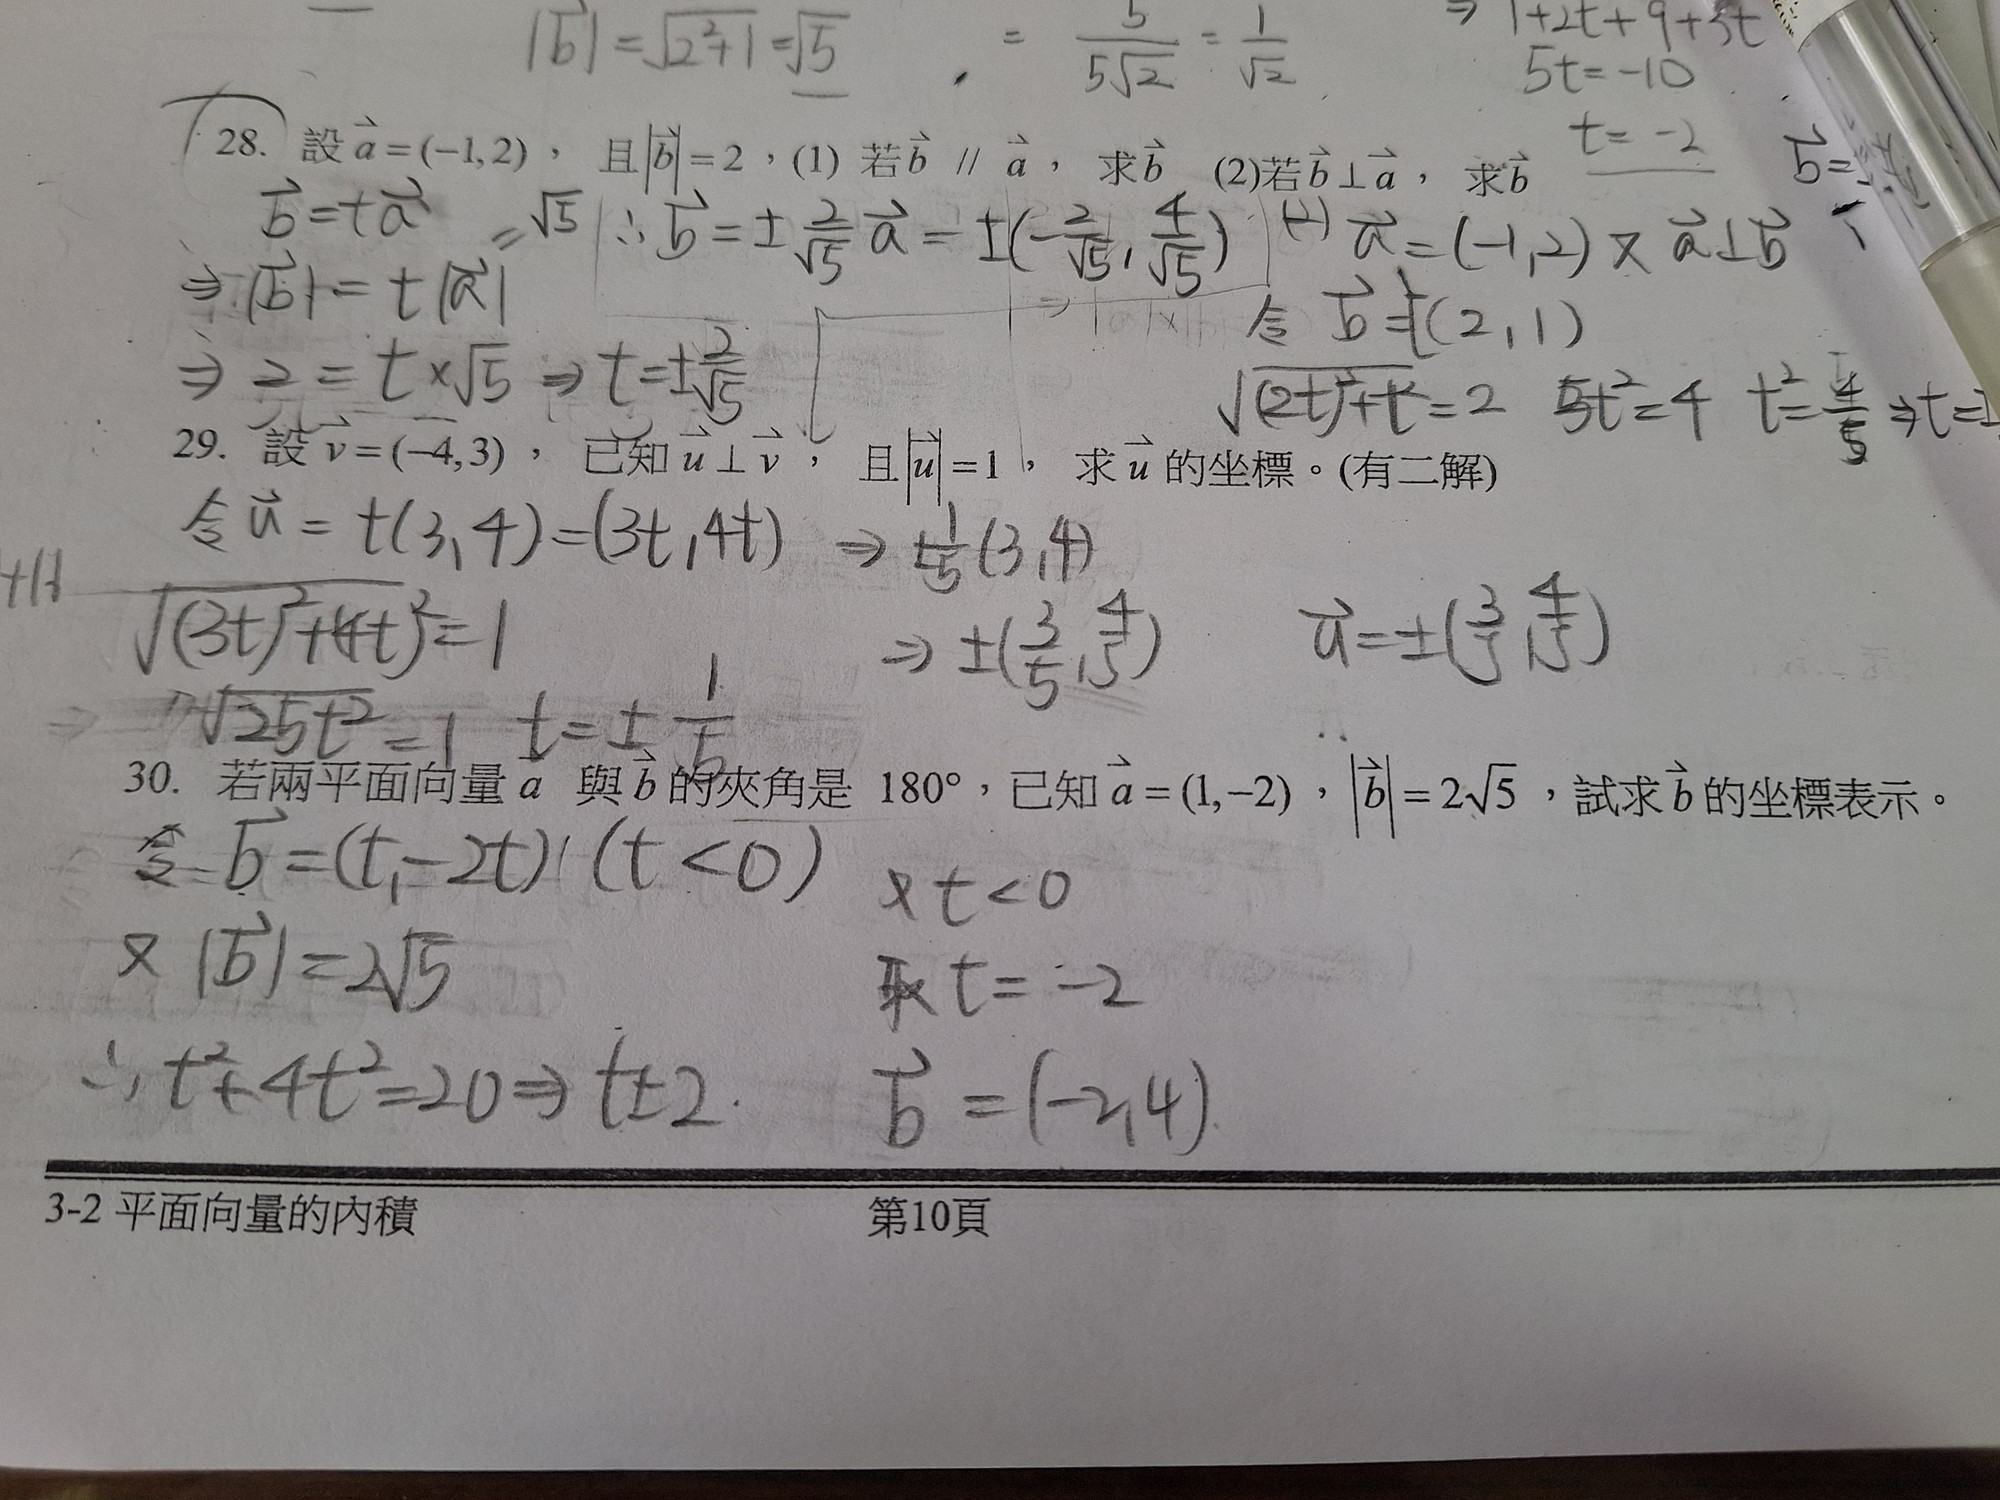 |b⃗| = √2²+1 = √5
= 5/5√2 = 1/√2
⇒ 1+2t+9+3t
5t=-10
t=-2
28. 設 a⃗=(−1,2)， 且|b⃗|=2，(1) 若b⃗ // a⃗， 求b⃗ (2)若b⃗⊥a⃗， 求b⃗
b⃗=
b⃗=ta⃗
⇒ |b⃗| = t|a⃗| = √5
⇒ 2 = t×√5 ⇒ t=±2/√5
∴ b⃗ = ±2/√5 a⃗ = ±(-2/√5, 4/√5)
a⃗=(-1,2) 又 a⃗⊥b⃗
令 b⃗=t(2,1)
√(2t)²+t²=2 5t²=4 t²=4/5 ⇒t=
29. 設 v⃗=(−4,3)， 已知 u⃗⊥v⃗， 且|u⃗|=1， 求 u⃗ 的坐標。(有二解)
令 u⃗ = t(3,4)=(3t,4t) ⇒ ±1/5(3,4)
√(3t)²+(4t)²=1 ⇒ ±(3/5,4/5) u⃗=±(3/5,4/5)
√25t²=1 t=±1/5
30. 若兩平面向量 a⃗ 與 b⃗ 的夾角是 180°，已知 a⃗=(1,−2)，|b⃗|=2√5，試求 b⃗ 的坐標表示。
令 b⃗=(t,-2t) (t<0) 又 t<0
又 |b⃗|=2√5 取 t=-2
∴ t²+4t²=20⇒ t=±2. b⃗ =(-2,4).
3-2 平面向量的內積 第10頁